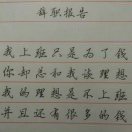 辞职报告
我上班只是为了钱
你却总和我谈理想
我的理想是不上班
并且还有很多的钱